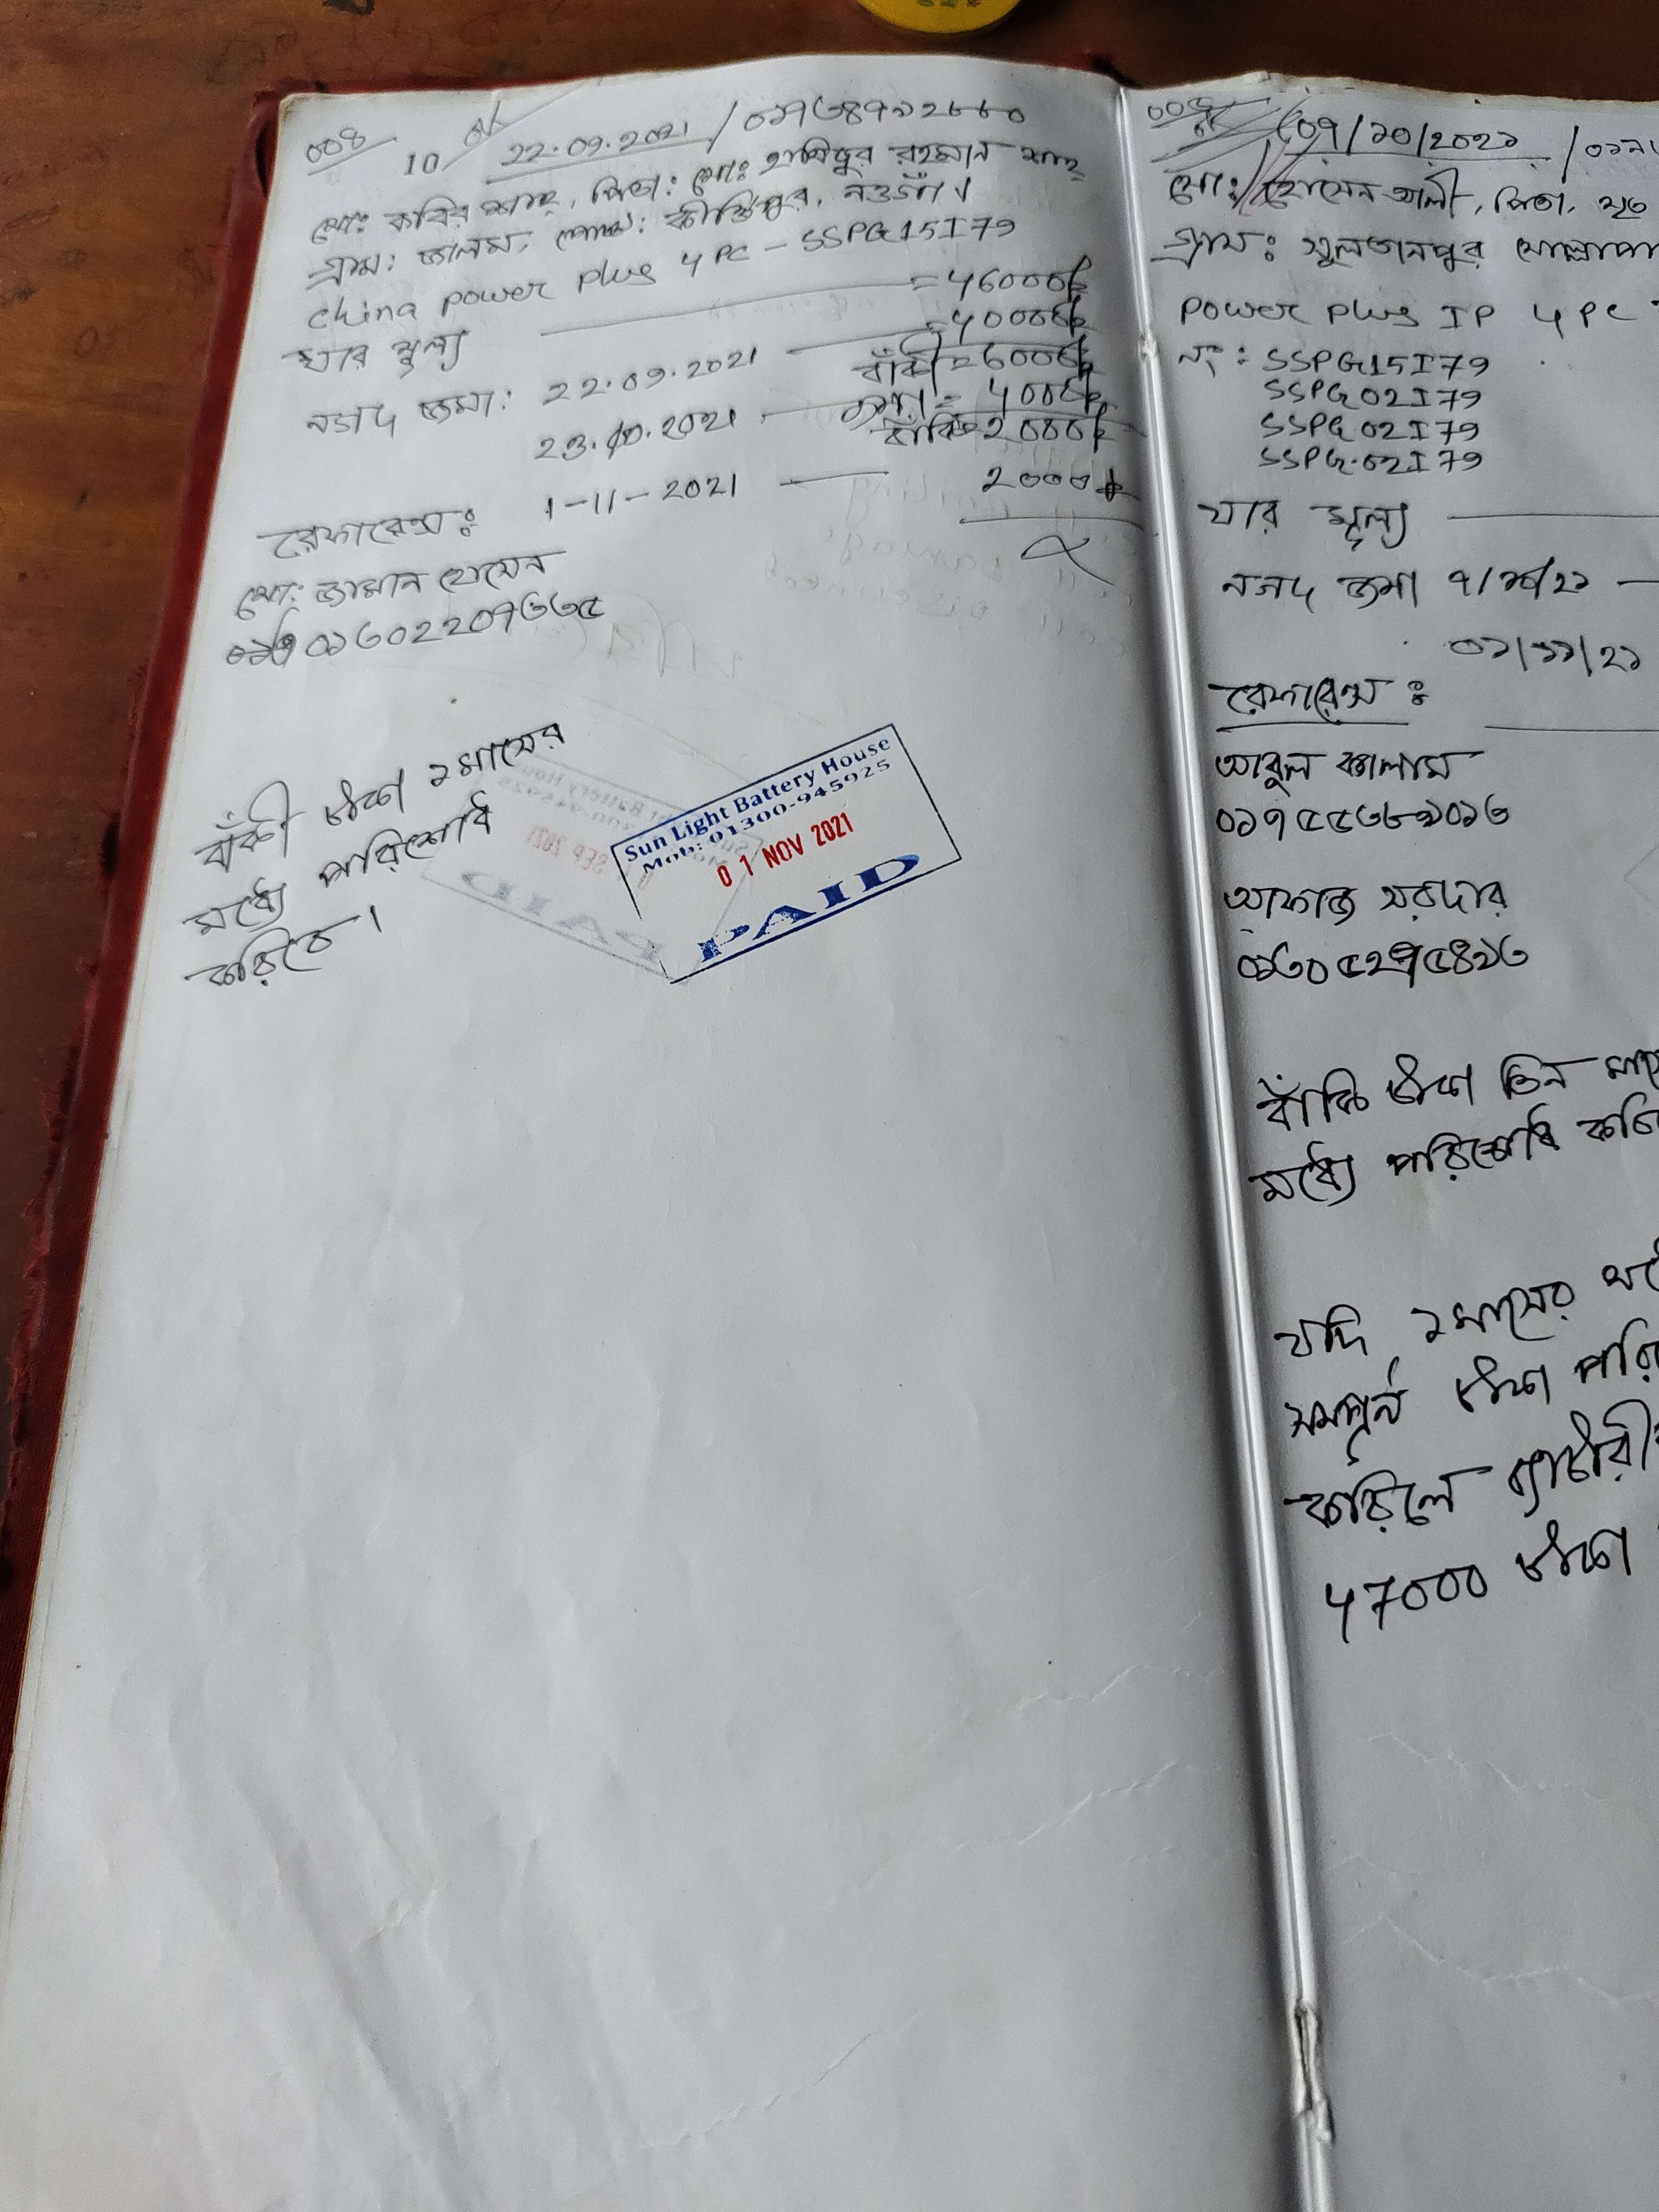 ০০৪
10
ok
22.09.2021 / ০১৭৩৪৭১২৮৮০
মোঃ কবির শাহ্, পিতা: মোঃ হাবিবুর রহমান শাহ্
গ্রাম: জালম, পোষ্ট: কীর্ত্তিপুর, নওগাঁ।
China power plus 4 PC - SSPG15I79
যার মূল্য = 46000/=
নগদ জমা: 22.09.2021 = 40000/=
বাঁকী = 6000/=
23.10.2021 জমা = 4000/=
বাঁকি = 2000/=
1-11-2021 2000/=
রেফারেন্স:
মোঃ জামান হোসেন
০১৩০২২০৭৬৬৫
বাঁকী টাকা ১মাসের
মধ্যে পরিশোধ
করিবে।
Sun Light Battery House
Mob: 01300-945925
01 NOV 2021
PAID
০৭/১০/২০২১ /
মোঃ হোসেন আলী, পিতা. মৃত
গ্রাম: সুলতানপুর
Power plus IP 4 PC
নং: SSPG15I79
SSPG02I79
SSPG02I79
SSPG.02I79
যার মূল্য
নগদ জমা ৭/১০/২১
০১/১১/২১
রেফারেন্স:
আবুল কালাম
০১৭৫৫৬৬৯০১৩
আফাজ সরদার
বাঁকি টাকা তিন
মধ্যে পরিশোধ
যদি ১মাসের
সম্পূর্ন টাকা
করিলে
47000 টাকা